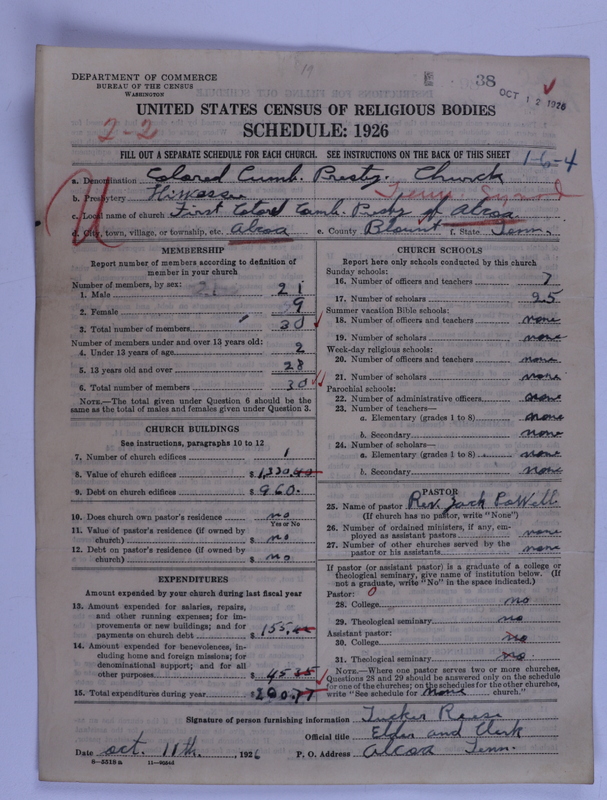 DEPARTMENT OF COMMERCE
BUREAU OF THE CENSUS
WASHINGTON
38
OCT 12 1926
UNITED STATES CENSUS OF RELIGIOUS BODIES
2-2
SCHEDULE: 1926
FILL OUT A SEPARATE SCHEDULE FOR EACH CHURCH. SEE INSTRUCTIONS ON THE BACK OF THIS SHEET
1-6-4
a. Denomination Colored Cumb. Presby. Church
b. Presbytery Hiwassee Tenn Synod
c. Local name of church First Colored Cumb. Presby of Alcoa
d. City, town, village, or township, etc. Alcoa e. County Blount f. State Tenn.
MEMBERSHIP
Report number of members according to definition of
member in your church
Number of members, by sex:
1. Male 21
2. Female 9
3. Total number of members 30
Number of members under and over 13 years old:
4. Under 13 years of age 2
5. 13 years old and over 28
6. Total number of members 30
NOTE.—The total given under Question 6 should be the
same as the total of males and females given under Question 3.
CHURCH BUILDINGS
See instructions, paragraphs 10 to 12
7. Number of church edifices 1
8. Value of church edifices $ 1,330.00
9. Debt on church edifices $ 960.
10. Does church own pastor's residence no
Yes or No
11. Value of pastor's residence (if owned by
church) $ no
12. Debt on pastor's residence (if owned by
church) $ no
EXPENDITURES
Amount expended by your church during last fiscal year
13. Amount expended for salaries, repairs,
and other running expenses; for im-
provements or new buildings; and for
payments on church debt $ 155.
14. Amount expended for benevolences, in-
cluding home and foreign missions; for
denominational support; and for all
other purposes $ 45
15. Total expenditures during year $ 200.
CHURCH SCHOOLS
Report here only schools conducted by this church
Sunday schools:
16. Number of officers and teachers 7
17. Number of scholars 25
Summer vacation Bible schools:
18. Number of officers and teachers none
19. Number of scholars none
Week-day religious schools:
20. Number of officers and teachers none
21. Number of scholars none
Parochial schools:
22. Number of administrative officers none
23. Number of teachers—
a. Elementary (grades 1 to 8) none
b. Secondary none
24. Number of scholars—
a. Elementary (grades 1 to 8) none
b. Secondary none
PASTOR
25. Name of pastor Rev. Jack Powell
(If church has no pastor, write "None")
26. Number of ordained ministers, if any, em-
ployed as assistant pastors none
27. Number of other churches served by the
pastor or his assistants none
If pastor (or assistant pastor) is a graduate of a college or
theological seminary, give name of institution below. (If
not a graduate, write "No" in the space indicated.)
Pastor: 0
28. College no
29. Theological seminary no
Assistant pastor:
30. College no
31. Theological seminary no
NOTE.—Where one pastor serves two or more churches,
Questions 28 and 29 should be answered only on the schedule
for one of the churches; on the schedules for the other churches,
write "See schedule for none church."
Signature of person furnishing information Tucker Reese
Official title Elder and Clerk
Date Oct. 11th, 1926 P. O. Address Alcoa Tenn.